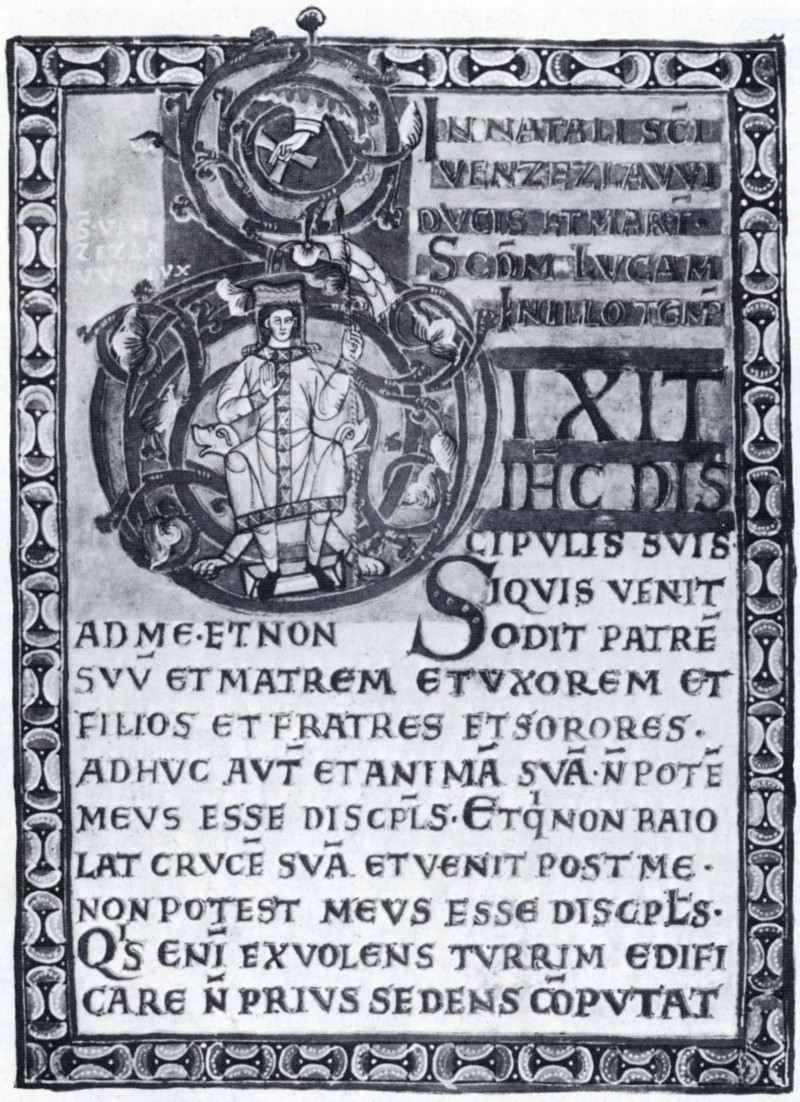 S̄·VEN
ZEZLA
VVS DVX
IN NATALI SC̄I
VENZEZLAVVI
DVCIS ET MART̄·
SCDM̄ LVCAM
IN ILLO TEMP̄
DIXIT
IH̄C DIS
CIPVLIS SVIS·
SIQVIS VENIT
AD ME·ET NON ODIT PATRĒ
SVV̄ ET MATREM ET VXOREM ET
FILIOS ET FRATRES ET SORORES·
ADHVC AVT̄ ET ANIMĀ SVĀ·N̄ POTĒ
MEVS ESSE DISCPL̄S·ET qͥ NON BAIO
LAT CRVCĒ SVĀ ET VENIT POST ME·
NON POTEST MEVS ESSE DISCPL̄S·
QͥS ENĪ EX VOLENS TVRRIM EDIFI
CARE N̄ PRIVS SEDENS CŌPVTAT